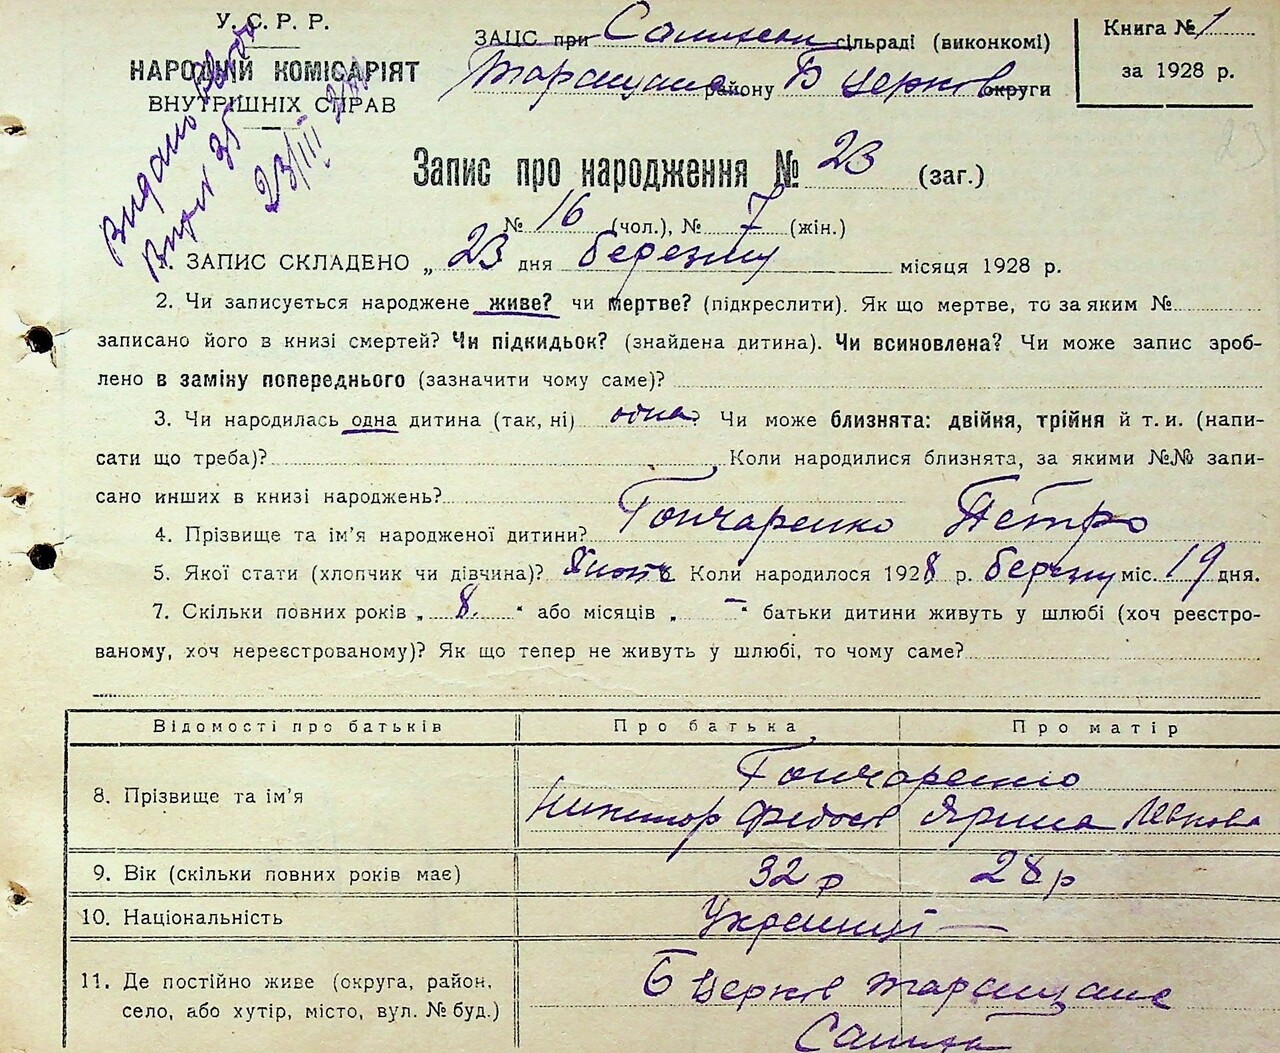 У. С. Р. Р.
НАРОДНІЙ КОМІСАРІЯТ
ВНУТРІШНІХ СПРАВ
ЗАЦС при сільраді (виконкомі)
Таращанс району Б Церков округи
Книга № 1
за 1928 р.
23/III
Запис про народження № 23 (заг.)
№ 16 (чол.), № 7 (жін.)
1. ЗАПИС СКЛАДЕНО „ 23 дня березня місяця 1928 р.
2. Чи записується народжене живе? чи мертве? (підкреслити). Як що мертве, то за яким №
записано його в книзі смертей? Чи підкидьок? (знайдена дитина). Чи всиновлена? Чи може запис зроб-
лено в заміну попереднього (зазначити чому саме)?
3. Чи народилась одна дитина (так, ні) одна? Чи може близнята: двійня, трійня й т. и. (напи-
сати що треба)? Коли народилися близнята, за якими №№ запи-
сано инших в книзі народжень?
4. Прізвище та ім'я народженої дитини? Гончаренко Петро
5. Якої стати (хлопчик чи дівчина)? Коли народилося 1928 р. березня міс. 19 дня.
7. Скільки повних років „ 8. " або місяців „ — " батьки дитини живуть у шлюбі (хоч реєстро-
ваному, хоч нереєстрованому)? Як що тепер не живуть у шлюбі, то чому саме?
Відомості про батьків Про батька Про матір
8. Прізвище та ім'я Гончаренко
Никифор Федосів Ярина Левкова
9. Вік (скільки повних років має) 32 р 28 р
10. Національність Українці —
11. Де постійно живе (округа, район, село, або хутір, місто, вул. № буд.) Б Церков Таращанс